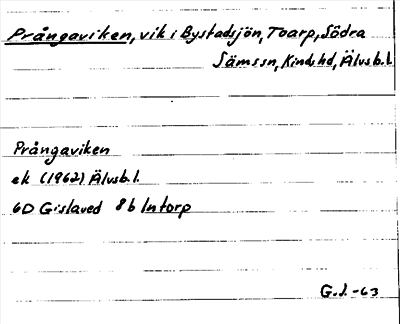 Prångaviken, vik i Bystadsjön, Toarp, Södra
Säms sn, Kinds hd, Älvsb.l.
Prångaviken
ek (1962) Älvsb.l.
6D Gislaved 8b Intorp
G.J. -63